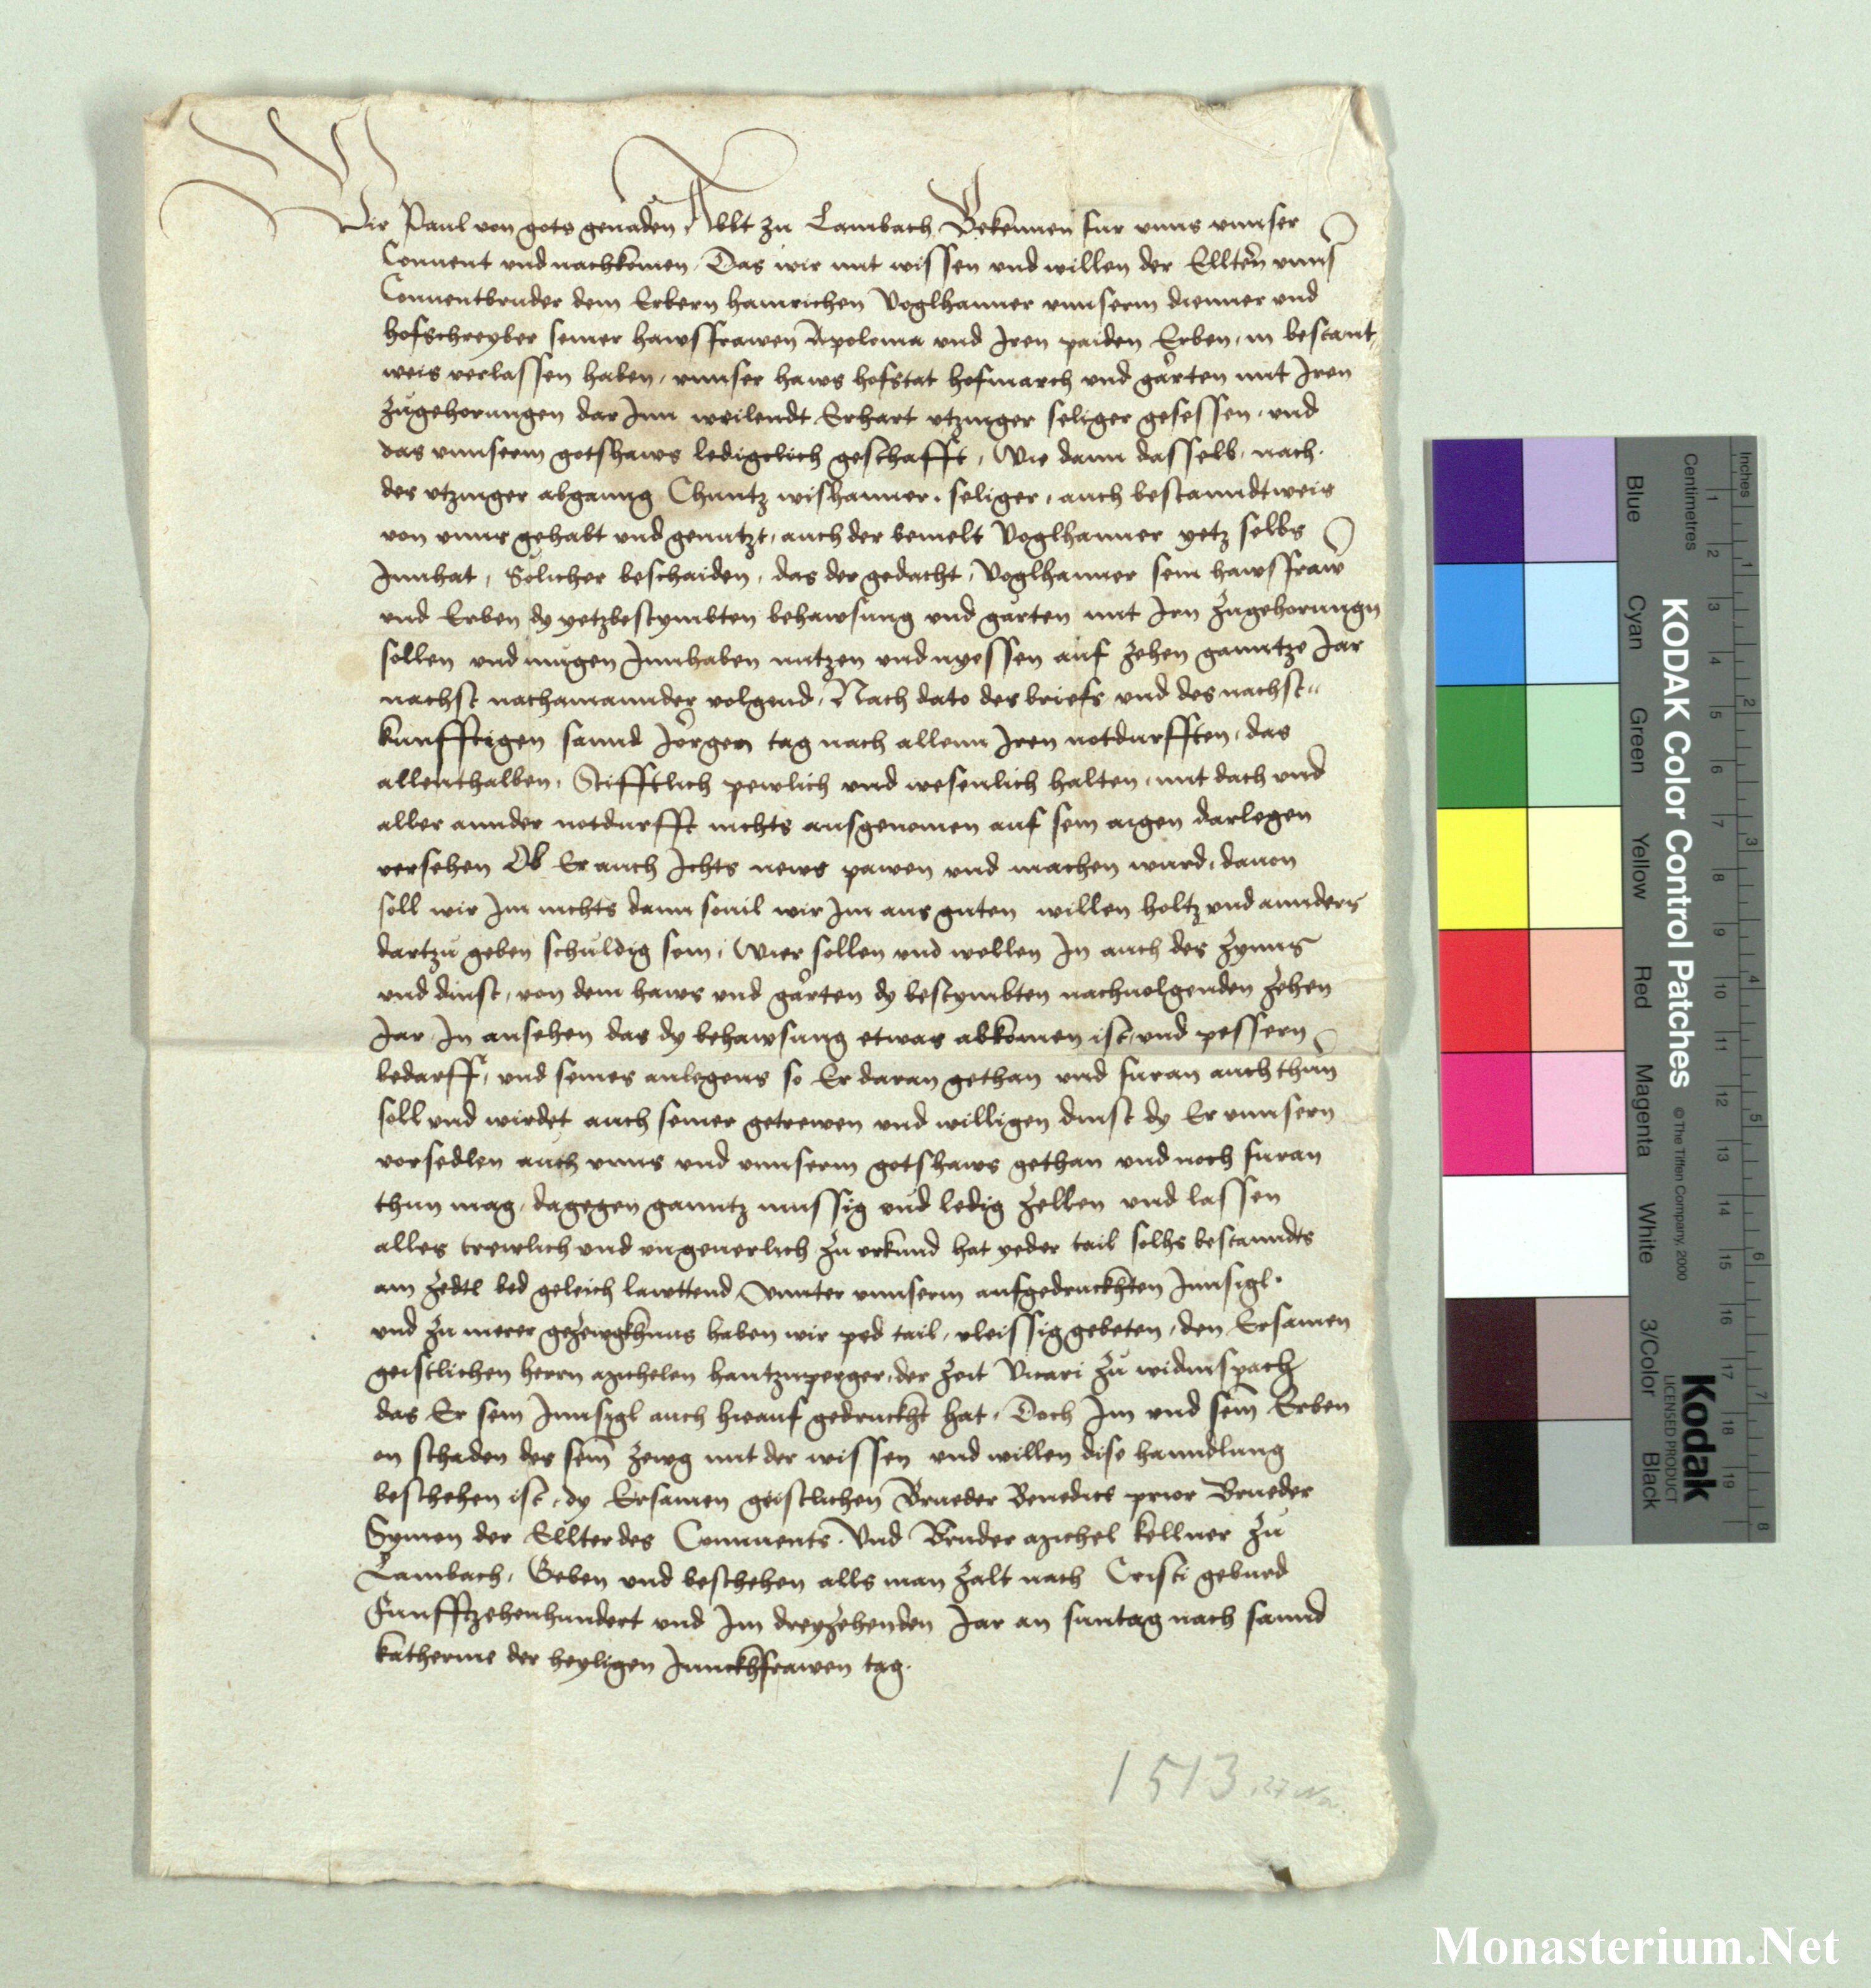 Wir Paul von gots genaden Abbt zu Lambach Bekennen fur vnns vnnser
Conuent vnd nachkomen, Das wir mit wissen vnd willen der Ellten vnns
Conuentbruder dem Erbern hainrichen Voglhanner vnnserm dienner vnd
hofschreyber seiner hawsfrawen Apolonia vnd Iren paiden Erben, in bestant
weis verlassen haben, vnnser haws hofstat hofmarch vnd gärten mit Iren
zugehorungen dar Inn weilendt Erhart vtzinger seliger gesessen, vnd
das vnnserm gotshaws lediglich geschafft, Wie dann dasselb, nach
des vtzinger abganng Chuntz wishanner, seliger, auch bestanndtweis
von vnns gehabt vnd genutzt, auch der bemelt Voglhanner yetz selbs
Innhat, Solicher beschaiden, das der gedacht, Voglhanner sein hawsfraw
vnd Erben dy yetzbestymbten behawsung vnd garten mit Irn zugehorungn
sollen vnd mugen Innhaben nutzen vnd nyessen auf zehen ganntze Iar
nachst nachainannder volgend, Nach dato des briefs vnd des nachst
kunfftigen sannd Jörgen tag nach allenn Iren notdurfften, das
allenthalben, Stifftlich pewlich vnd wesenlich halten, mit dach vnd
aller annder notdurfft nichts ausgenomen auf sein aigen darlegen
versehen Ob Er auch Ichts news pawen vnd machen wurd, dauon
soll wir Im nichts dann souil wir Im aus guten willen holtz vnd annders
dartzu geben schuldig sein, Wier sollen vnd wellen In auch des zynns
vnd dinst, von dem haws vnd gärten dy bestymbten nachuolgenden zehen
Iar In ansehen das dy behawsung etwas abkomen ist, vnd pessern
bedarff, vnd seines anlegens so Er daran gethan vnd furan auch thun
soll vnd wirdet auch seiner getrewen vnd willigen dinst dy Er vnnsern
vorfedlen auch vnns vnd vnnserm gotshaws gethan vnd noch furan
thun mag, dagegen ganntz mussig vnd ledig zellen vnd lassen
alles trewlich vnd vngeuerlich zu vrkund hat yeder tail solhs bestanndts
ain zedtl bed geleich lawttend Vnnter vnnserm aufgedruckhten Innsigl
vnd zu merer gezewgkhnus haben wir ped tail, vleissig gebeten, den Ersamen
geistlichen herrn Michelen hantzinperger, der zeit Vicari zu widmspach
das Er sein Innsigl auch hieauf gedruckht hat, Doch Im vnd sein Erben
on schaden des sein zewg mit der wissen vnd willen dise hanndlung
beschehen ist, dy Ersamen geistlichen Brueder Benedict prior Brueder
Symon der Ellter des Conuents, Vnd Bruder Michel kellner zu
Lambach, Geben vnd beschehen alls man zalt nach Cristi geburd
Funfftzehenhundert vnd Im dreyzehenden Iar an suntag nach sannd
katherine der heyligen Junckhfrawen tag.
1513. 27 No.
KODAK Color Control Patches
© The Tiffen Company, 2000
Kodak
LICENSED PRODUCT
Inches
1 2 3 4 5 6 7 8
Centimetres
1 2 3 4 5 6 7 8 9 10 11 12 13 14 15 16 17 18 19
Blue Cyan Green Yellow Red Magenta White 3/Color Black
Monasterium.Net